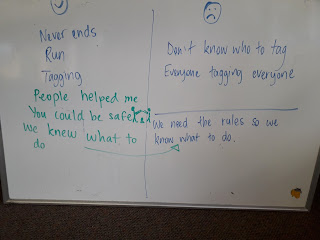 Never ends
Run
Tagging
People helped me
You could be safe
We knew what to
do
Don't know who to tag
Everyone tagging everyone
We need the rules so we
know what to do.